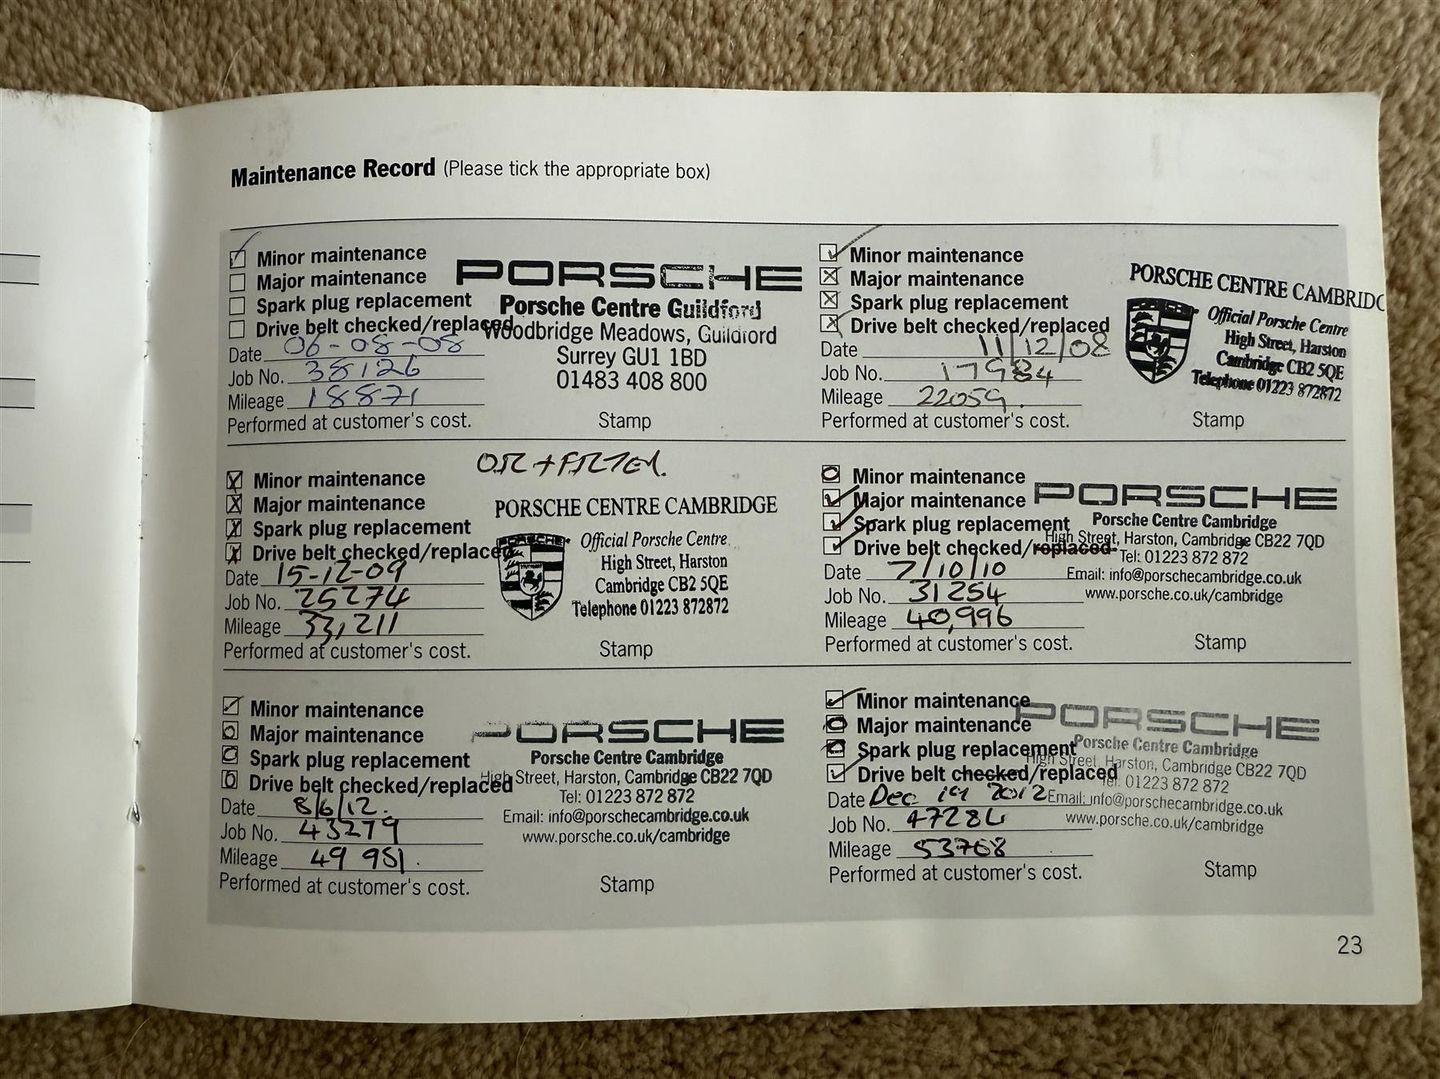 Maintenance Record (Please tick the appropriate box)
Minor maintenance
Major maintenance
Spark plug replacement
Drive belt checked/replaced
Date 06-08-08
Job No. 38126
Mileage 18871
Performed at customer's cost.
PORSCHE
Porsche Centre Guildford
Woodbridge Meadows, Guildford
Surrey GU1 1BD
01483 408 800
Stamp
Minor maintenance
Major maintenance
Spark plug replacement
Drive belt checked/replaced
Date 11/12/08
Job No. 17984
Mileage 22059.
Performed at customer's cost.
PORSCHE CENTRE CAMBRIDG
Official Porsche Centre
High Street, Harston
Cambridge CB2 5QE
Telephone 01223 872872
Stamp
OIL + FILTER.
Minor maintenance
Major maintenance
Spark plug replacement
Drive belt checked/replaced
Date 15-12-09
Job No. 25274
Mileage 33,211
Performed at customer's cost.
PORSCHE CENTRE CAMBRIDGE
PORSCHE
Official Porsche Centre
High Street, Harston
Cambridge CB2 5QE
Telephone 01223 872872
Stamp
Minor maintenance
Major maintenance
Spark plug replacement
Drive belt checked/replaced
Date 7/10/10
Job No. 31254
Mileage 40,996
Performed at customer's cost.
PORSCHE
Porsche Centre Cambridge
High Street, Harston, Cambridge CB22 7QD
Tel: 01223 872 872
Email: info@porschecambridge.co.uk
www.porsche.co.uk/cambridge
Stamp
Minor maintenance
Major maintenance
Spark plug replacement
Drive belt checked/replaced
Date 8/6/12.
Job No. 43279
Mileage 49 951.
Performed at customer's cost.
PORSCHE
Porsche Centre Cambridge
High Street, Harston, Cambridge CB22 7QD
Tel: 01223 872 872
Email: info@porschecambridge.co.uk
www.porsche.co.uk/cambridge
Stamp
Minor maintenance
Major maintenance
Spark plug replacement
Drive belt checked/replaced
Date Dec 19 2012
Job No. 47286
Mileage 53768
Performed at customer's cost.
PORSCHE
Porsche Centre Cambridge
High Street, Harston, Cambridge CB22 7QD
Tel: 01223 872 872
Email: info@porschecambridge.co.uk
www.porsche.co.uk/cambridge
Stamp
23